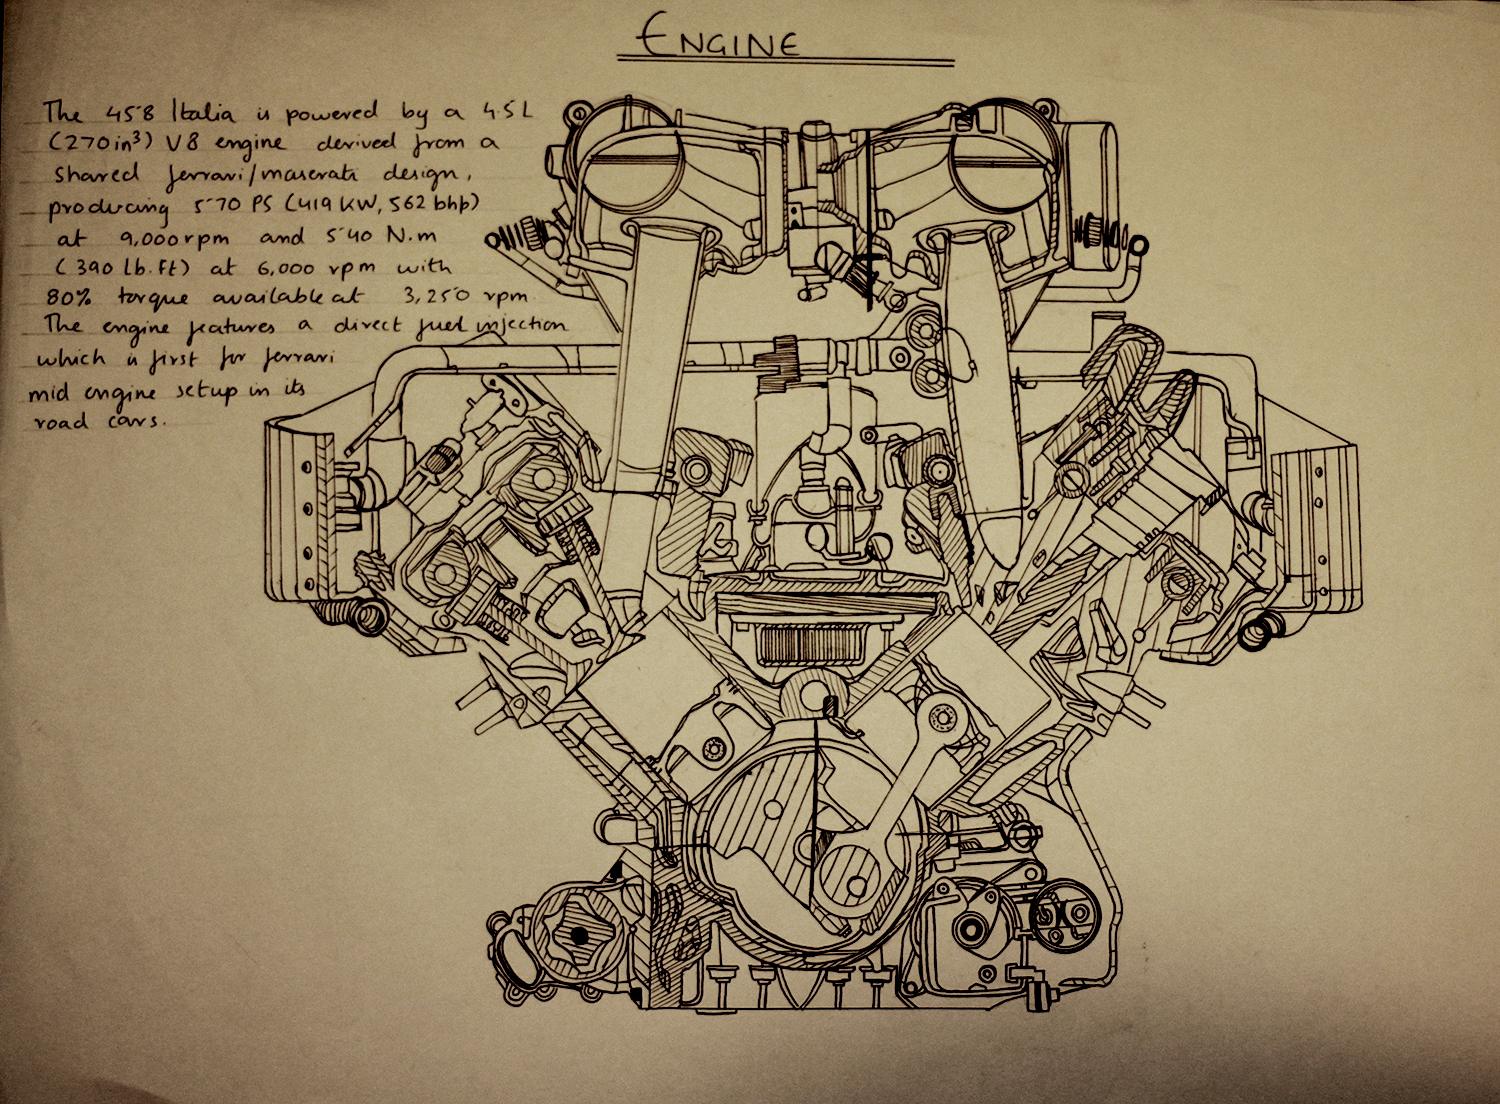 ENGINE
The 458 Italia is powered by a 4.5L
(270in³) V8 engine derived from a
shared ferrari/maserati design,
producing 570 PS (419 KW, 562 bhp)
at 9,000rpm and 540 N.m
(390 lb.ft) at 6,000 rpm with
80% torque available at 3,250 rpm.
The engine features a direct fuel injection
which is first for ferrari
mid engine setup in its
road cars.